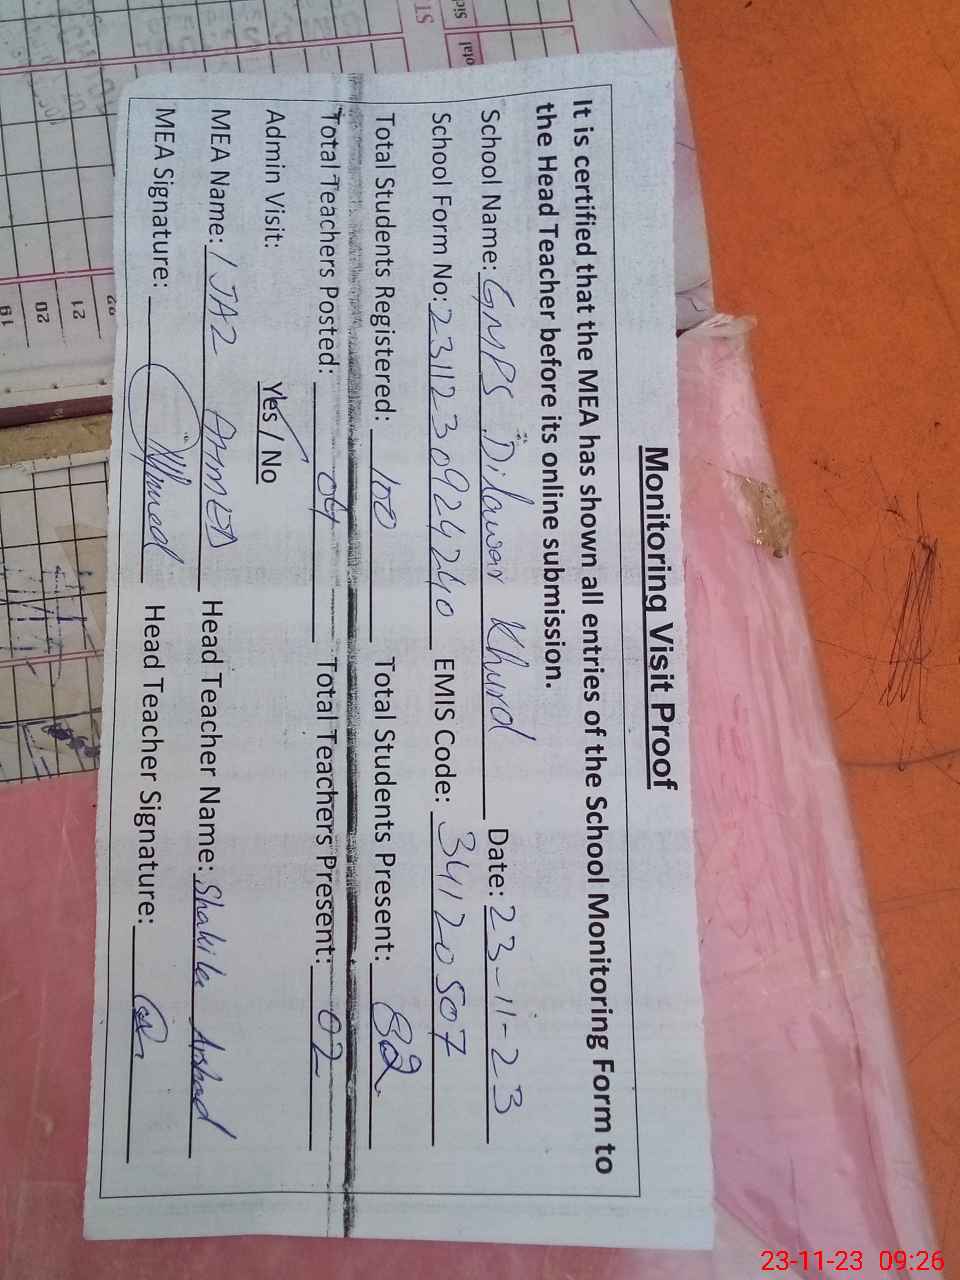 Monitoring Visit Proof
It is certified that the MEA has shown all entries of the School Monitoring Form to
the Head Teacher before its online submission.
School Name: GMPS Dilawar Khurd Date: 23-11-23
School Form No: 2311230924240 EMIS Code: 34120507
Total Students Registered: 100 Total Students Present: 82
Total Teachers Posted: 04 Total Teachers Present: 02
Admin Visit: Yes / No
MEA Name: IJAZ AHMED Head Teacher Name: Shakila Arshad
MEA Signature: Ahmed Head Teacher Signature:
ST
Sic
otal
21
20
19
23-11-23 09:26